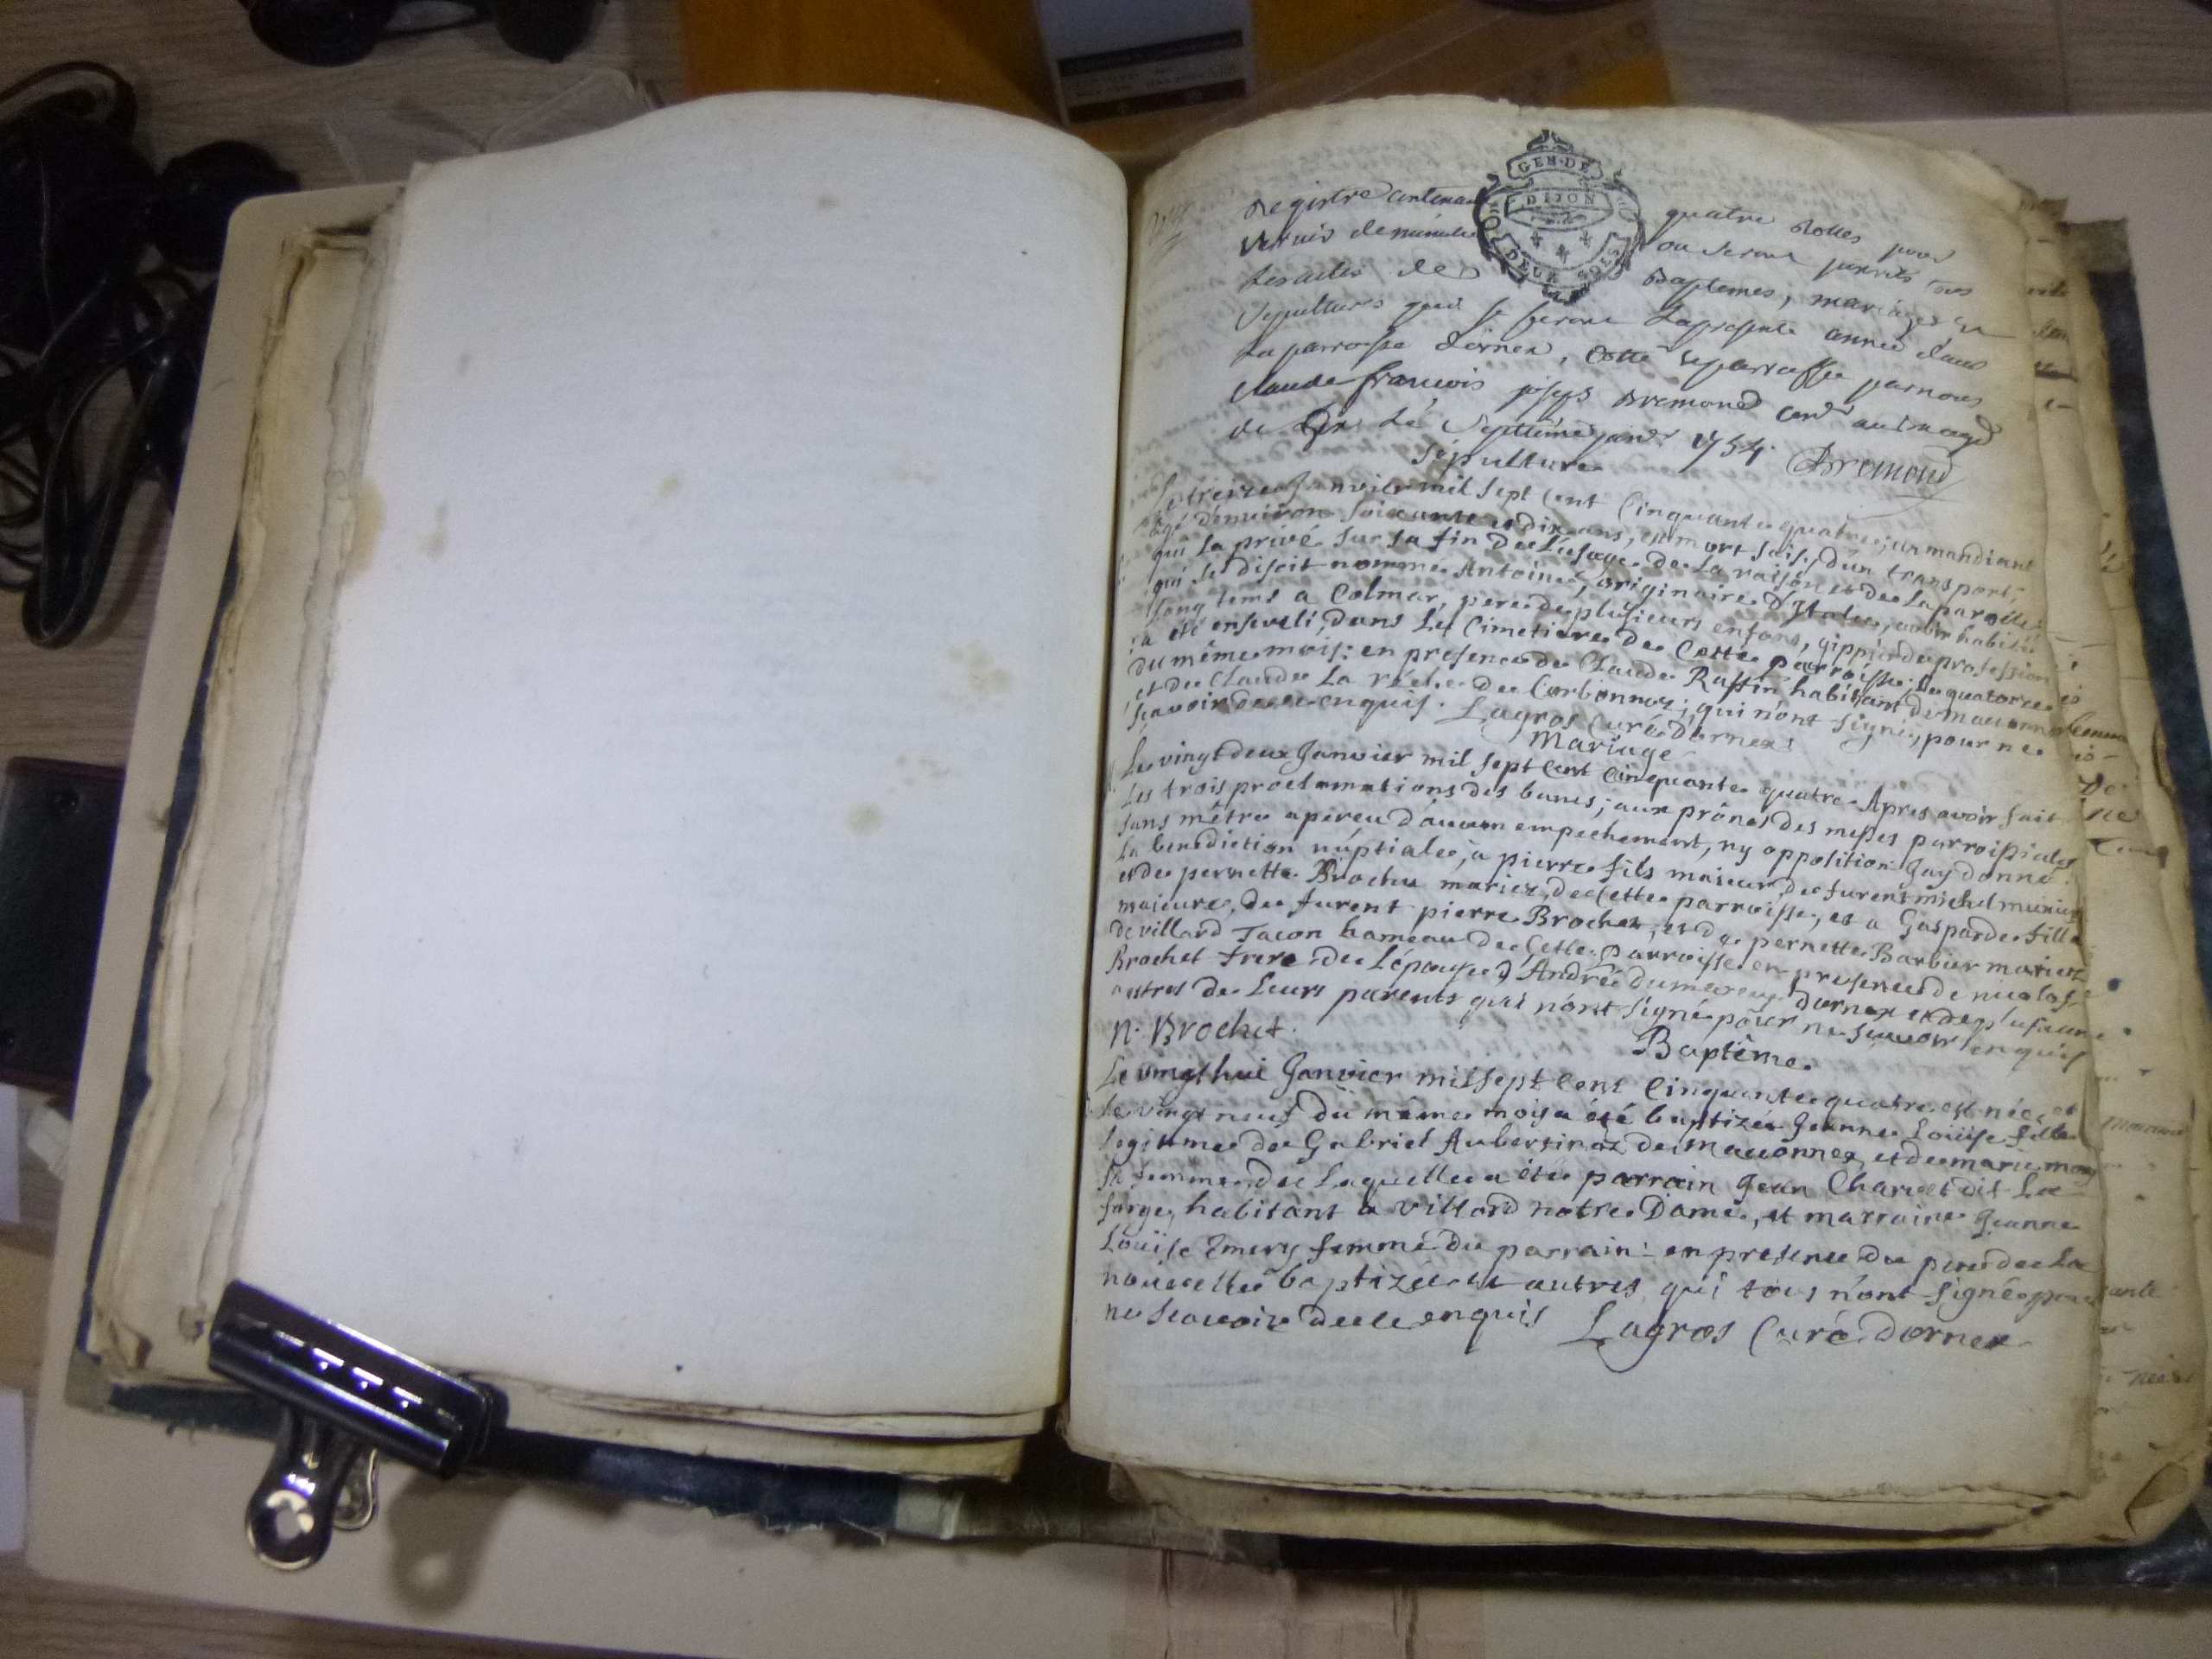 GEN·DE
DIJON
DEUX
Registre contenant quatre Rolles pour
servir de minute ou seront portés tous
les actes de Baptemes, mariages et
sepultures qui se feront la presente année dans
la parroisse d'ornex, Cotté et parraffé par nous
claude françois joseph Bremond au
de Gex le septième janv 1754. Bremond
Sépulture
Le treize Janvier mil sept cent Cinquante quatre, un mandiant
agé d'environ soixante et dix ans, est mort saisi d'un transport,
qui la privé sur sa fin de l'usage de la raison et de la parolle
qui se disoit nommé Antoine, originaire d'Italie, avoir habité
long tems a Colmar, pere de plusieurs enfans, gippier de profession
a été enseveli, dans le Cimetiere de cette parroisse, le quatorze
du même mois: en presence de Claude Raffin habitant de maconnex
et de Claude La de Corbonnoz; qui n'ont signé, pour ne
sçavoir de ce enquis. Lagros Curé Dornex
Mariage
Le vingt deux Janvier mil sept Cent Cinquante quatre Apres avoir fait
Les trois proclamations des bancs, aux prônes des messes parroissiales
sans m'être aperçu d'aucun empechement, ny opposition Jay donné
la benediction nuptiale, a pierre fils majeur, de furent michel
et de pernette Brochu mariez, de Cette parroisse, et a Gasparde fille
majeure, de furent pierre Brochet, et de pernette Barbier mariez
de villard Tacon hameau de Cette parroisse en presence de nicolas
Brochet frere de L'épouse, André Dornex et de plusieurs
autres de Leurs parents qui n'ont signé pour ne sçavoir enquis
N. Brochet.
Baptême.
Le vingt huit Janvier mil sept Cent Cinquante quatre est née, et
le vingt neuf du même mois a été baptizée Jeanne Loüise fille
legitime de Gabriel Aubersinoz de maconnex, et de marie
sa femme de Laquelle a été parrain Jean Charvet dit La
forge, habitant a villard notre Dame, et marraine Jeanne
Loüise Emery femme du parrain: en presence du pere de La
nouvelle baptizée et autres, qui tous n'ont signé pour
ne scavoir de ce enquis Lagros Curé Dornex